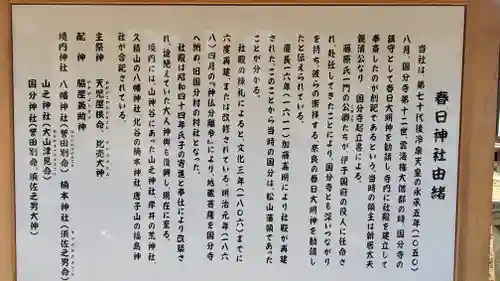 春日神社由緒
当社は、第七十代後冷泉天皇の永承五年(一〇五〇)
八月、国分寺第十二世雲海権大僧都の時、国分寺の
鎮守として春日大明神を勧請し、寺内に社殿を建立して
奉斎したのが創祀であるという。当時の領主は新居太夫
親清公なり 国分寺起立書による。
藤原氏一門の公卿たちが、伊予国府の役人に任命さ
れ、赴任してきたことにより、国分寺とも深いつながり
を持ち、彼らの崇拝する奈良の春日大明神を勧請し
たと伝えられている。
慶長十六年(一六一一)加藤嘉明により社殿が再建
された。このことから当時の国分は、松山藩領であった
ことが分かる。
社殿の棟札によると、文化三年(一八〇六)までに
六度再建、または改修されている。明治元年(一八六
八)四月の「神仏分離令」により、地蔵菩薩を国分寺
へ納め、旧国分村の村社となった。
社殿は昭和四十四年氏子の寄進と奉仕により改築さ
れ、途絶えていた大人神輿も復興し、現在に至る。
境内には、山神谷にあった山之神社、岸井の荒神社、
久積山の八幡神社、北谷の橘本神社、唐子山の福島神
社が合祀されている。
主祭神 天児屋根命、比売大神
配神 脇屋義助神
境内神社 八幡神社(誉田別命) 橘本神社(須佐之男命)
山之神社(大山津見命)
国分神社(誉田別命、須佐之男大神)